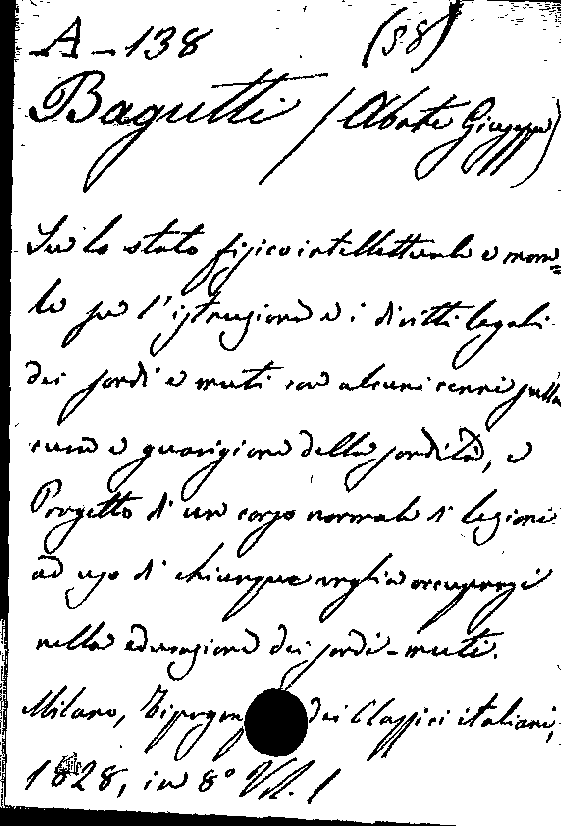 A - 138 (58)
Bagutti / (Abate Giuseppe)
Su lo stato fisico intellettuale e mora=
le su l'istruzione e i diritti legali
dei sordi e muti con alcuni cenni sulla
cura e guarigione della sordità, e
Progetto di un corso normale di lezioni
ad uso di chiunque voglia occuparsi
nella educazione dei sordi-muti.
Milano, Tipogra dei Classici italiani,
1828, in 8° Vol. 1